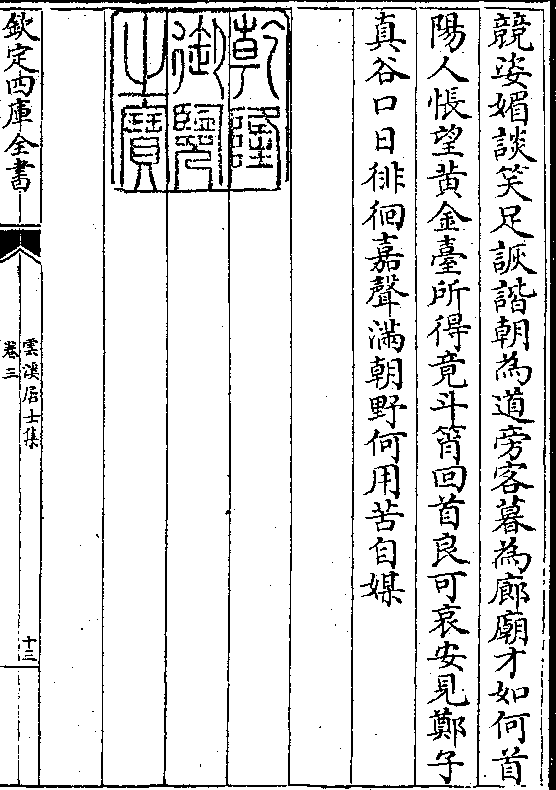 競姿媚談笑足詼諧朝為道旁客暮為廊廟才如何首
陽人悵望黄金臺所得竟斗筲回首良可哀安見鄭子
真谷口日徘徊嘉聲滿朝野何用苦自媒
乾隆
御覽
之寶
欽定四庫全書
雲溪居士集
卷三
十三